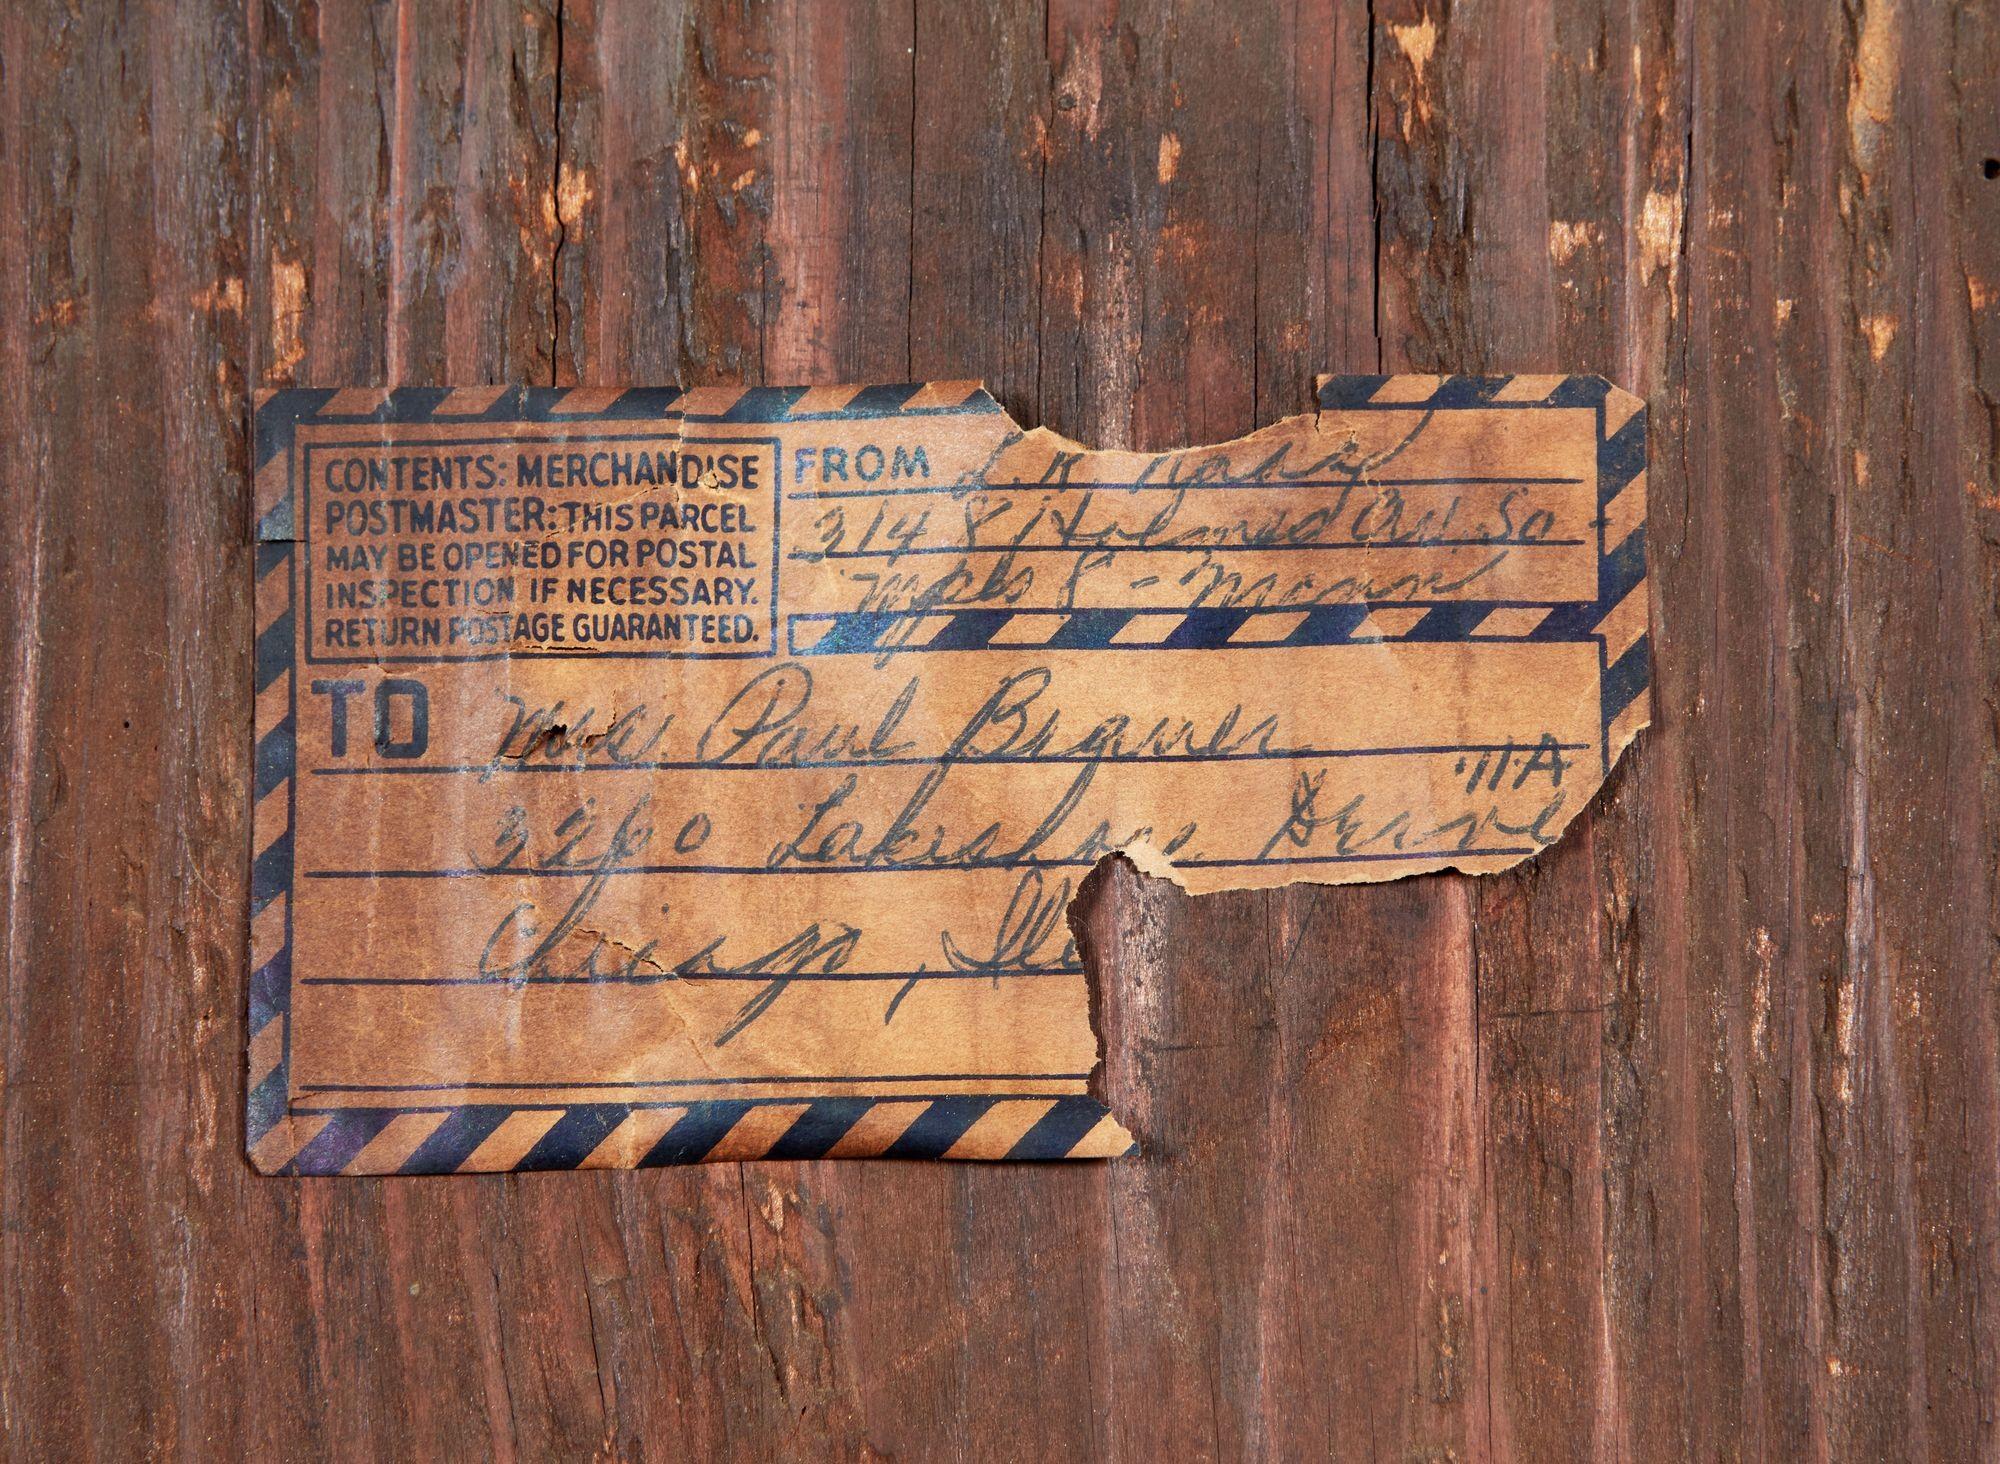 CONTENTS: MERCHANDISE
POSTMASTER: THIS PARCEL
MAY BE OPENED FOR POSTAL
INSPECTION IF NECESSARY.
RETURN POSTAGE GUARANTEED.
FROM L. R.
3148 Holmes Av. So.
Mpls 8 - Minn
TO Mrs. Paul
11A
3260 Lakeshore Drive
Chicago, Ill